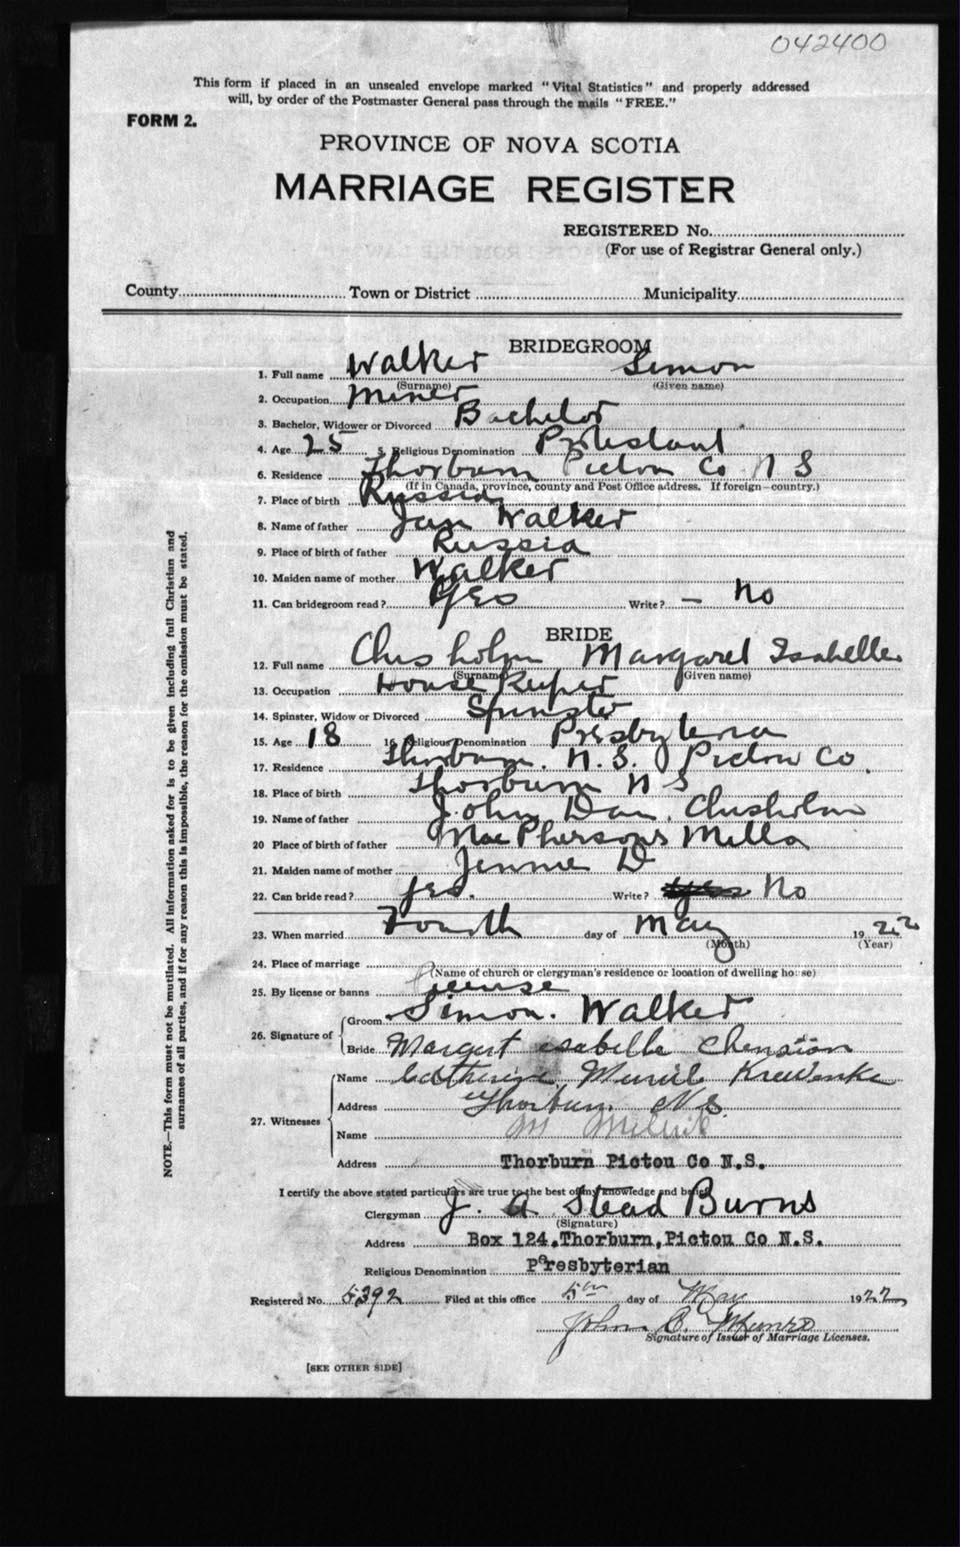 042400
This form if placed in an unsealed envelope marked "Vital Statistics" and properly addressed
will, by order of the Postmaster General pass through the mails "FREE."
FORM 2.
PROVINCE OF NOVA SCOTIA
MARRIAGE REGISTER
REGISTERED No.
(For use of Registrar General only.)
County Town or District Municipality
BRIDEGROOM
1. Full name Walker Simon
(Surname) (Given name)
2. Occupation Miner
3. Bachelor, Widower or Divorced Bachelor
4. Age 25 5. Religious Denomination Protestant
6. Residence Thorburn Pictou Co N S
(If in Canada, province, county and Post Office address. If foreign—country.)
7. Place of birth Russia
8. Name of father Jan Walker
9. Place of birth of father Russia
10. Maiden name of mother Walker
11. Can bridegroom read? Yes Write? — No
BRIDE
12. Full name Chisholm Margaret Isabelle
(Surname) (Given name)
13. Occupation House Keeper
14. Spinster, Widow or Divorced Spinster
15. Age 18 16. Religious Denomination Presbyterian
17. Residence Thorburn. N.S. Pictou Co.
18. Place of birth Thorburn N S
19. Name of father John Dan. Chisholm
20 Place of birth of father MacPhersons Mills
21. Maiden name of mother Jennie D
22. Can bride read? Yes. Write? Yes No
23. When married Fourth day of May 1922
(Month) (Year)
24. Place of marriage
(Name of church or clergyman's residence or location of dwelling house)
25. By license or banns license
26. Signature of
Groom Simon. Walker
Bride Margert isabelle
27. Witnesses
Name Catherine
Address Thorburn N S
Name M
Address Thorburn Pictou Co N.S.
I certify the above stated particulars are true to the best of my knowledge and belief
Clergyman J. A Stead Burns
(Signature)
Address Box 124, Thorburn, Pictou Co N.S.
Religious Denomination Presbyterian
Registered No. 5392 Filed at this office 5th day of May 1922
John C. Munro
Signature of Issuer of Marriage Licenses.
[SEE OTHER SIDE]
NOTE.—This form must not be mutilated. All information asked for is to be given including full Christian and
surnames of all parties, and if for any reason this is impossible, the reason for the omission must be stated.